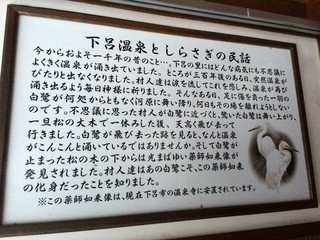 下呂温泉としらさぎの民話
今からおよそ一千年の昔のこと…。下呂の里にはどんな病気にも不思議に
よくきく温泉が湧き出ていました。ところが三百年後のある日、突然温泉が
ぴたりと出なくなりました。村人達は涙を流してこれを悲しみ、温泉が再び
湧き出るよう毎日神様に祈りました。そんなある日、足に傷を負った一羽の
白鷺が何処からともなく河原に舞い降り、何日もその場を離れようとしない
のです。不思議に思った村人が白鷺に近づくと、驚いた白鷺は舞い上がり、
一旦松の大木で一休みした後、天高く飛び去って
行きました。白鷺が飛び去った跡を見ると、なんと温泉
がこんこんと湧いているではありませんか。そして白鷺が
止まった松の木の下からは光まばゆい薬師如来像が
発見されました。村人達はあの白鷺こそ、この薬師如来
の化身だったことを知りました。
※この薬師如来像は、現在下呂市の温泉寺に安置されています。